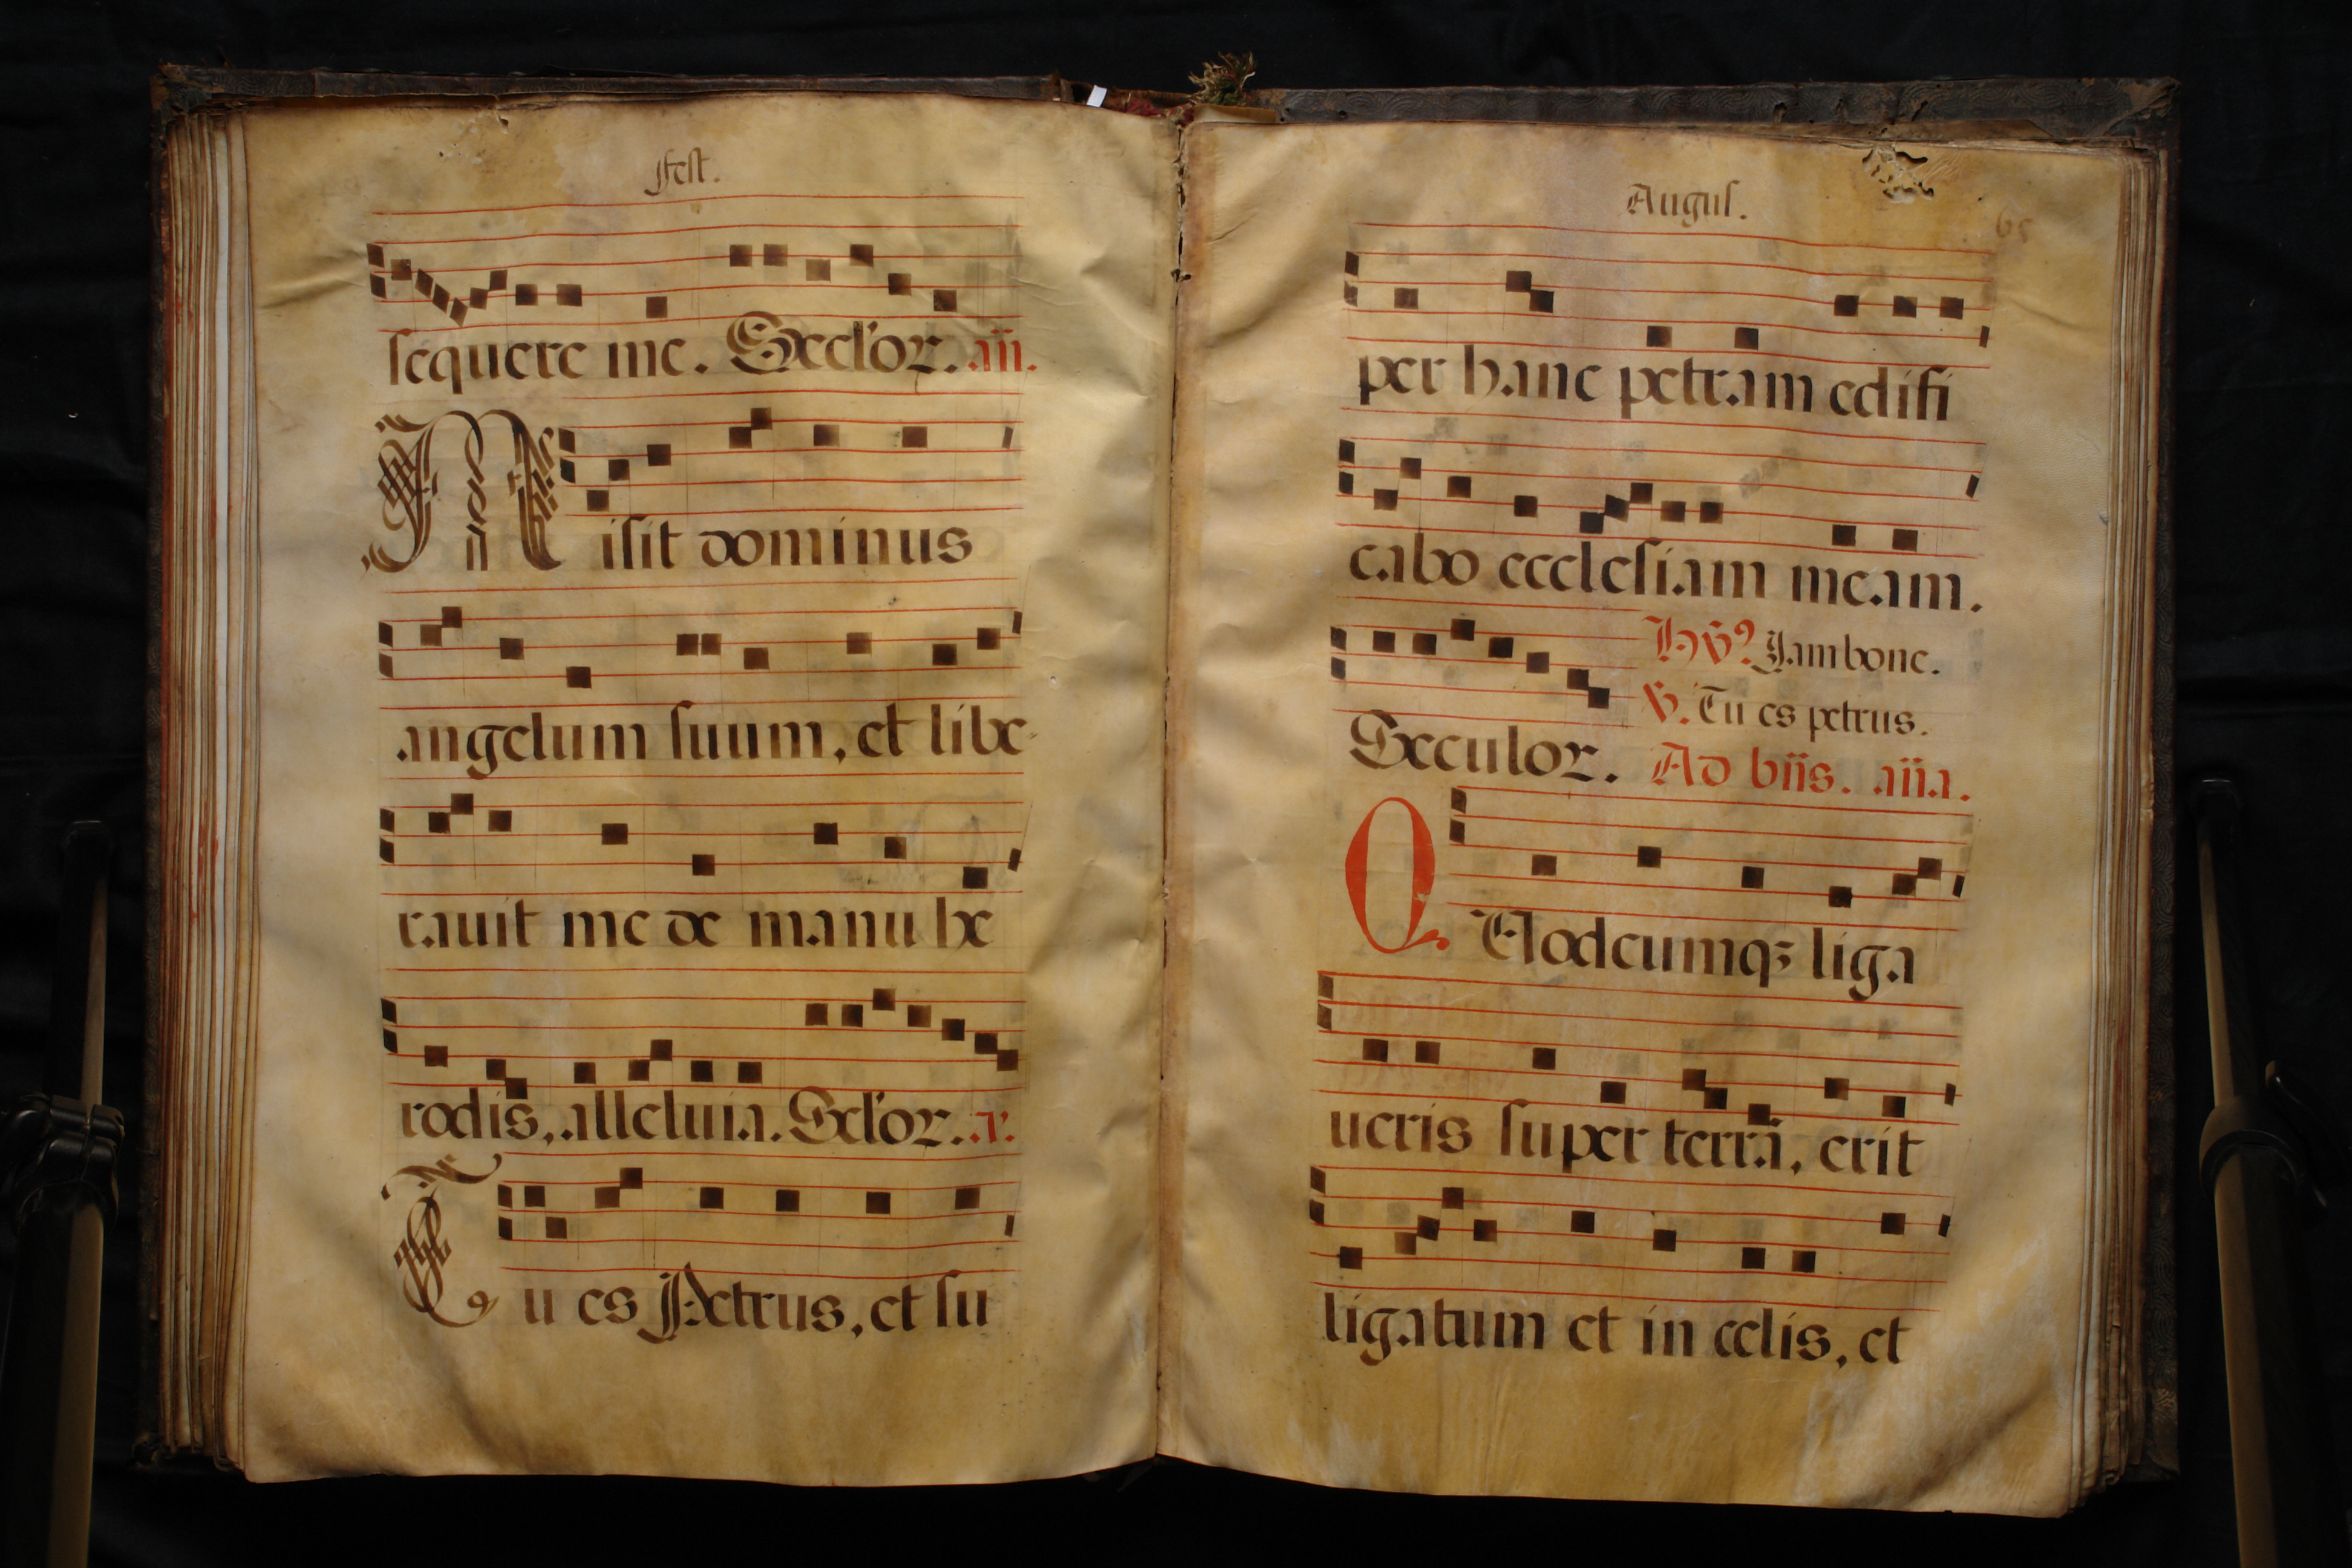 Fest.
sequere me. Seclor. an.
Misit dominus
angelum suum, et libe-
rauit me de manu he
rodis, alleluia. Seclor. a.
Tu es Petrus, et su
Augus.
65
per hanc petram edifi
cabo ecclesiam meam.
Hỹ⁹ Iam bone.
℣. Tu es petrus.
Seculor. Ad bñs. aña.
QUodcumqꝫ liga
ueris super terrā, erit
ligatum et in celis, et